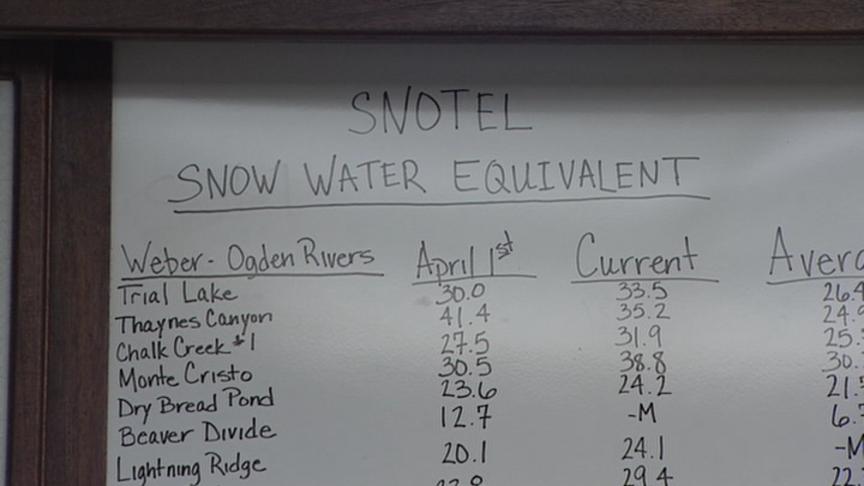 SNOTEL
SNOW WATER EQUIVALENT
Weber - Ogden Rivers April 1st Current Avera
Trial Lake 30.0 33.5 26.4
Thaynes Canyon 41.4 35.2 24.9
Chalk Creek #1 27.5 31.9 25.
Monte Cristo 30.5 38.8 30.
Dry Bread Pond 23.6 24.2 21.
Beaver Divide 12.7 -M 6.
Lightning Ridge 20.1 24.1 -M
29.4 22.